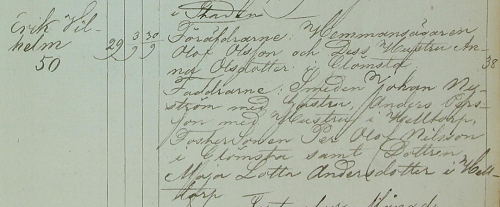 i Skaden
Erik Vil-
helm
50
29 3/9 30/9
Föräldrarne: Hemmansägaren
Olof Olsson och Dess Hustru An-
na Olsdotter i Clömsta. 38
Faddrarne: Smeden Johan Ny-
ström med Hustru, Anders Pers-
son med Hustru i Helltorp,
Fostersonen Per Olof Nilsson
i Clömsta samt Dottren
Maja Lotta Andersdotter i Hell-
torp